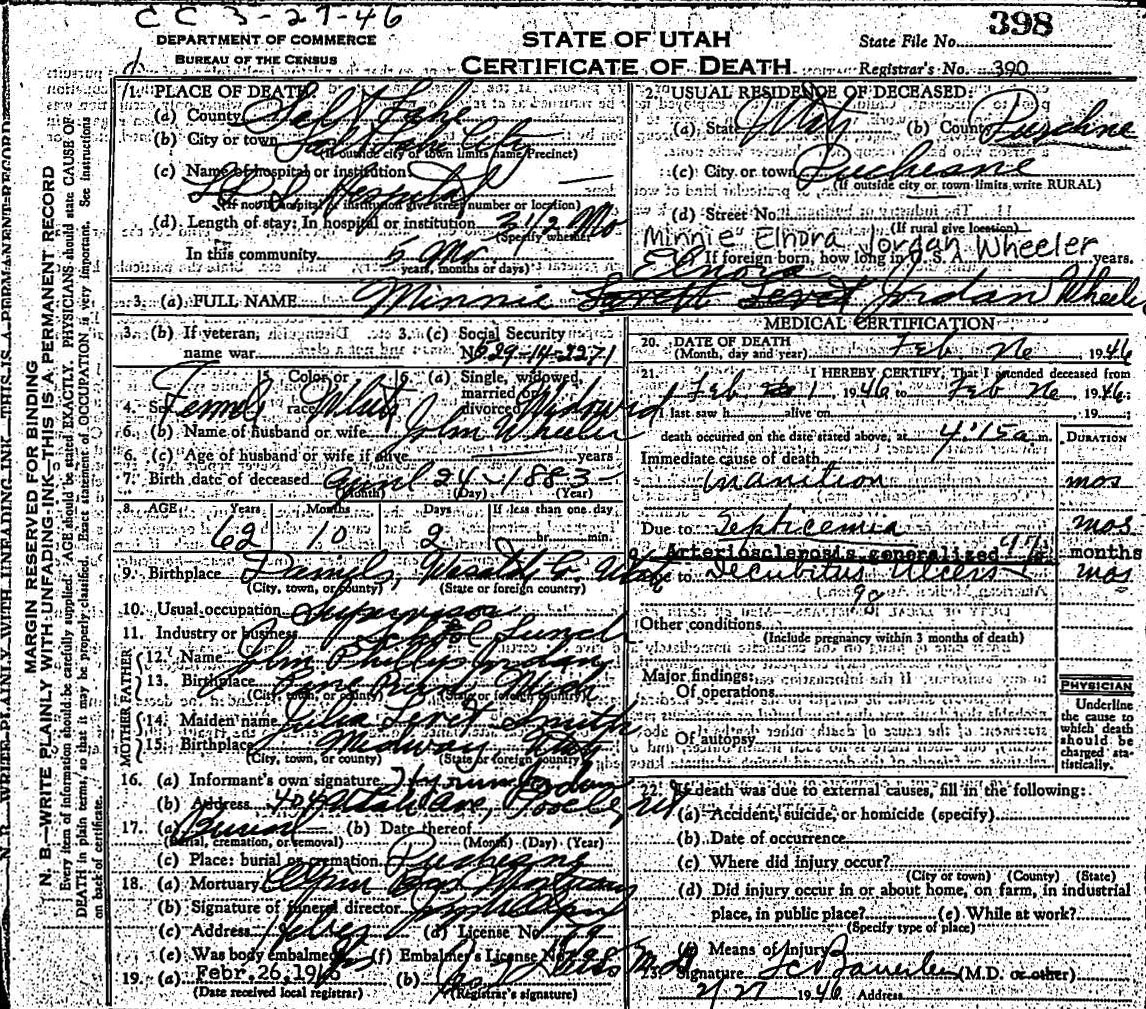 CC 3-27-46
DEPARTMENT OF COMMERCE
BUREAU OF THE CENSUS
STATE OF UTAH
CERTIFICATE OF DEATH
State File No. 398
Registrar's No. 390
MARGIN RESERVED FOR BINDING
N. B.—WRITE PLAINLY WITH UNFADING INK—THIS IS A PERMANENT RECORD
Every item of information should be carefully supplied. AGE should be stated EXACTLY. PHYSICIANS should state CAUSE OF
DEATH in plain terms, so that it may be properly classified. Exact statement of OCCUPATION is very important. See instructions
on back of certificate.
1. PLACE OF DEATH
(a) County Salt Lake
(b) City or town Salt Lake City
(If outside city or town limits name Precinct)
(c) Name of hospital or institution
L D S Hospital
(If not in hospital or institution give street number or location)
(d) Length of stay: In hospital or institution 3 1/2 Mo
(Specify whether
In this community 5 Mo
years, months or days)
2. USUAL RESIDENCE OF DECEASED:
(a) State Utah (b) County Duchesne
(c) City or town Duchesne
(If outside city or town limits write RURAL)
(d) Street No.
(If rural give location)
Minnie Elnora Jordan Wheeler
If foreign born, how long in U. S. A. years.
Elnora
3. (a) FULL NAME Minnie Jordan Wheeler
3. (b) If veteran, name war
3. (c) Social Security
No. 529-14-2271
4. Sex Female
5. Color or race White
6. (a) Single, widowed, married or divorced Widowed
6. (b) Name of husband or wife John Wheeler
6. (c) Age of husband or wife if alive years
7. Birth date of deceased April 24 - 1883
(Month) (Day) (Year)
8. AGE Years Months Days If less than one day
62 10 2 hr. min.
9. Birthplace Daniels, Wasatch Co. Utah
(City, town, or county) (State or foreign country)
10. Usual occupation Supervisor
11. Industry or business School Lunch
FATHER
12. Name John Phillip Jordan
13. Birthplace
(City, town, or county) (State or foreign country)
MOTHER
14. Maiden name Julia Smith
15. Birthplace Midway, Utah
(City, town, or county) (State or foreign country)
16. (a) Informant's own signature Jordan
(b) Address 404 Utah Ave, Tooele
17. (a) Burial (b) Date thereof
(Burial, cremation, or removal) (Month) (Day) (Year)
(c) Place: burial or cremation Duchesne
18. (a) Mortuary Mortuary
(b) Signature of funeral director
(c) Address (d) License No.
(e) Was body embalmed (f) Embalmer's License No.
19. (a) Febr. 26, 1946 (b)
(Date received local registrar) (Registrar's signature)
MEDICAL CERTIFICATION
20. DATE OF DEATH
(Month, day and year) Feb. 1946
21. I HEREBY CERTIFY, That I attended deceased from
Feb 1, 1946 to Feb 1946;
I last saw h alive on , 19 ;
death occurred on the date stated above, at 4:15 a m.
DURATION
Immediate cause of death
Inanition mos
Due to Septicemia mos
Arteriosclerosis, generalized 97 months
Due to Decubitus Ulcers mos
98
Other conditions
(Include pregnancy within 3 months of death)
Major findings:
Of operations
Of autopsy
PHYSICIAN
Underline
the cause to
which death
should be
charged sta-
tistically.
22. If death was due to external causes, fill in the following:
(a) Accident, suicide, or homicide (specify)
(b) Date of occurrence
(c) Where did injury occur?
(City or town) (County) (State)
(d) Did injury occur in or about home, on farm, in industrial
place, in public place? (e) While at work?
(Specify type of place)
Means of Injury
23. Signature (M.D. or other)
2/27 1946 Address